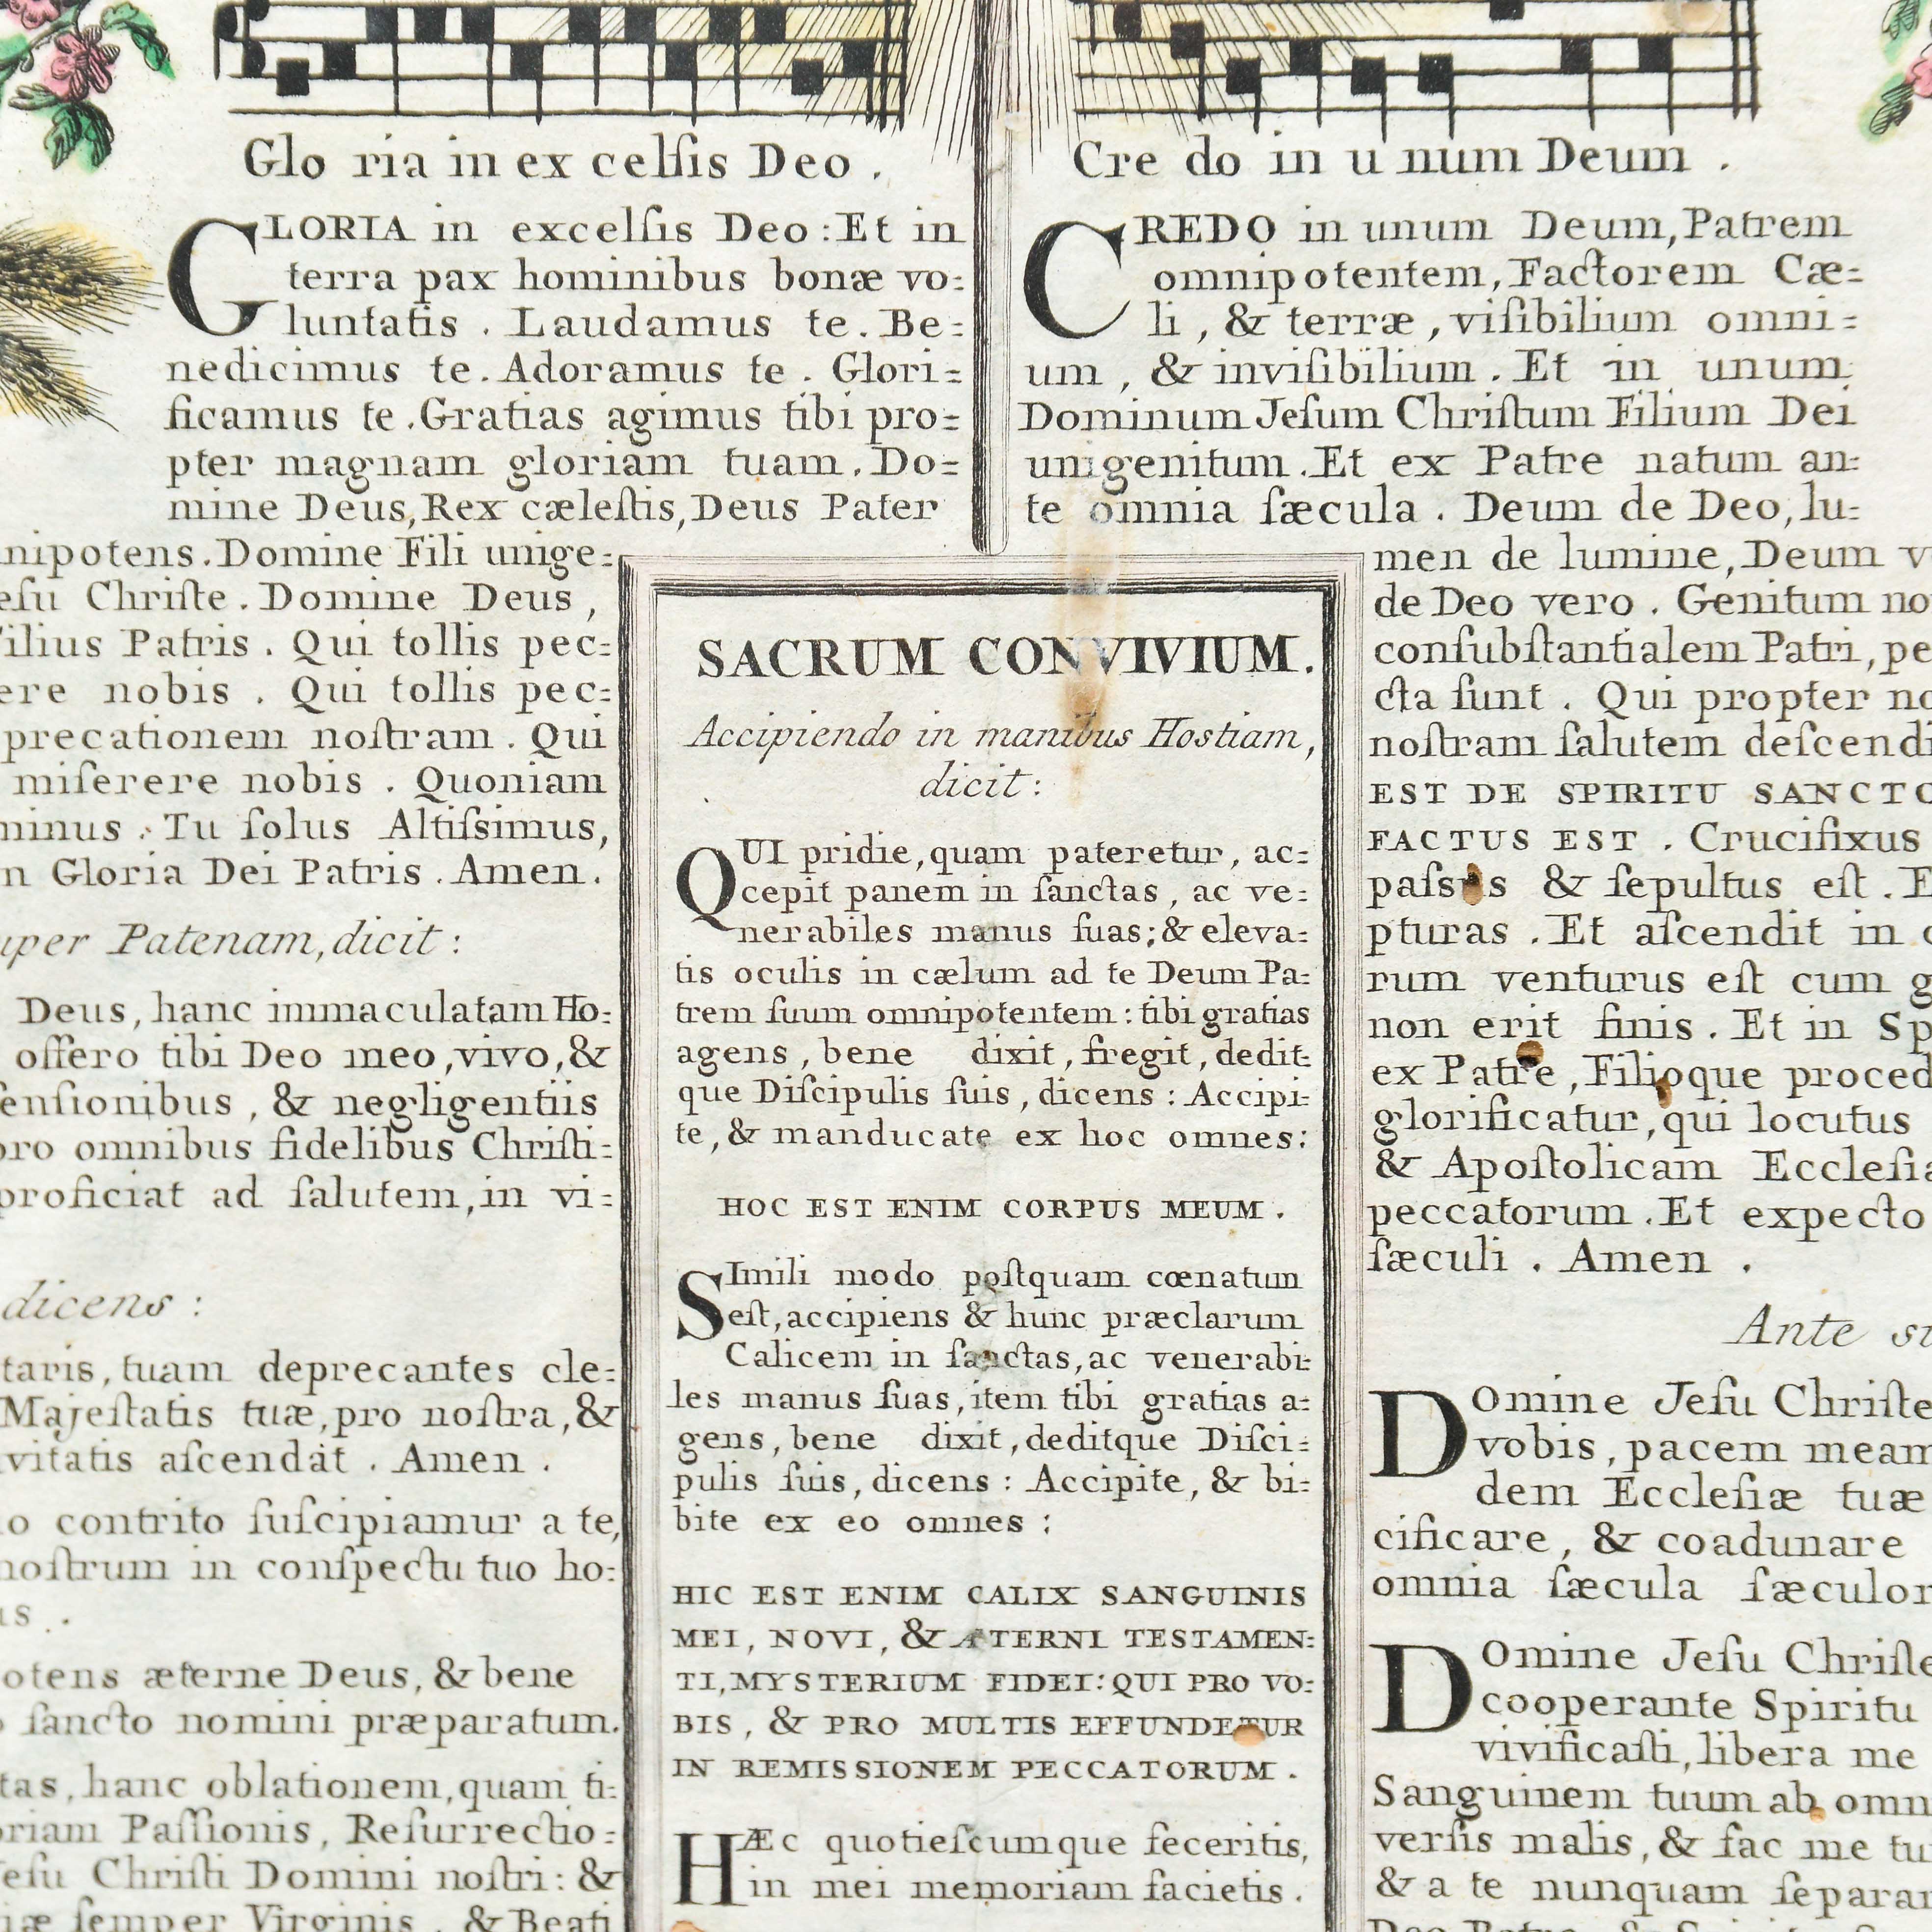 Glo ria in ex celſis Deo .
GLORIA in excelſis Deo : Et in
terra pax hominibus bonæ vo=
luntatis . Laudamus te . Be=
nedicimus te . Adoramus te . Glori=
ficamus te . Gratias agimus tibi pro=
pter magnam gloriam tuam . Do=
mine Deus, Rex cæleſtis, Deus Pater
nipotens . Domine Fili unige=
eſu Chriſte . Domine Deus ,
ilius Patris . Qui tollis pec=
ere nobis . Qui tollis pec=
precationem noſtram . Qui
miſerere nobis . Quoniam
minus . Tu ſolus Altiſsimus,
n Gloria Dei Patris . Amen .
uper Patenam, dicit :
Deus, hanc immaculatam Ho=
offero tibi Deo meo, vivo, &
enſionibus , & negligentiis
pro omnibus fidelibus Chriſti=
proficiat ad ſalutem, in vi=
dicens :
taris, tuam deprecantes cle=
Majeſtatis tuæ, pro noſtra, &
vitatis aſcendat . Amen .
o contrito ſuſcipiamur a te,
noſtrum in conſpectu tuo ho=
us .
otens æterne Deus, & bene
ſancto nomini præparatum.
tas, hanc oblationem, quam ti=
oriam Paſſionis, Reſurrectio=
eſu Chriſti Domini noſtri : &
iæ ſemper Virginis , & Beati
SACRUM CONVIVIUM.
Accipiendo in manibus Hostiam,
dicit :
QUI pridie, quam pateretur , ac=
cepit panem in ſanctas , ac ve=
nerabiles manus ſuas; & eleva=
tis oculis in cælum ad te Deum Pa=
trem ſuum omnipotentem : tibi gratias
agens , bene dixit , fregit , dedit=
que Diſcipulis ſuis , dicens : Accipi=
te , & manducate ex hoc omnes :
HOC EST ENIM CORPUS MEUM .
SImili modo poſtquam cœnatum
eſt, accipiens & hunc præclarum
Calicem in ſanctas, ac venerabi=
les manus ſuas, item tibi gratias a=
gens , bene dixit , deditque Diſci=
pulis ſuis, dicens : Accipite, & bi=
bite ex eo omnes :
HIC EST ENIM CALIX SANGUINIS
MEI, NOVI, & ÆTERNI TESTAMEN=
TI, MYSTERIUM FIDEI: QUI PRO VO=
BIS , & PRO MULTIS EFFUNDETUR
IN REMISSIONEM PECCATORUM .
HÆc quotieſcumque feceritis,
in mei memoriam facietis .
Cre do in u num Deum .
CREDO in unum Deum, Patrem
omnipotentem, Factorem Cæ=
li , & terræ , viſibilium omni=
um , & inviſibilium . Et in unum
Dominum Jeſum Chriſtum Filium Dei
unigenitum . Et ex Patre natum an=
te omnia ſæcula . Deum de Deo, lu=
men de lumine, Deum v
de Deo vero . Genitum no
conſubſtantialem Patri, pe
cta ſunt . Qui propter no
noſtram ſalutem deſcendi
EST DE SPIRITU SANCTO
FACTUS EST . Crucifixus
paſsus & ſepultus eſt . E
pturas . Et aſcendit in c
rum venturus eſt cum g
non erit finis . Et in Sp
ex Patre , Filioque proced
glorificatur, qui locutus
& Apoſtolicam Eccleſia
peccatorum . Et expecto
ſæculi . Amen .
Ante su
DOmine Jeſu Chriſte
vobis , pacem meam
dem Eccleſiæ tuæ
cificare , & coadunare
omnia ſæcula ſæculor
DOmine Jeſu Chriſte
cooperante Spiritu
vivificaſti, libera me
Sanguinem tuum ab omn
verſis malis, & fac me tu
& a te nunquam ſeparar